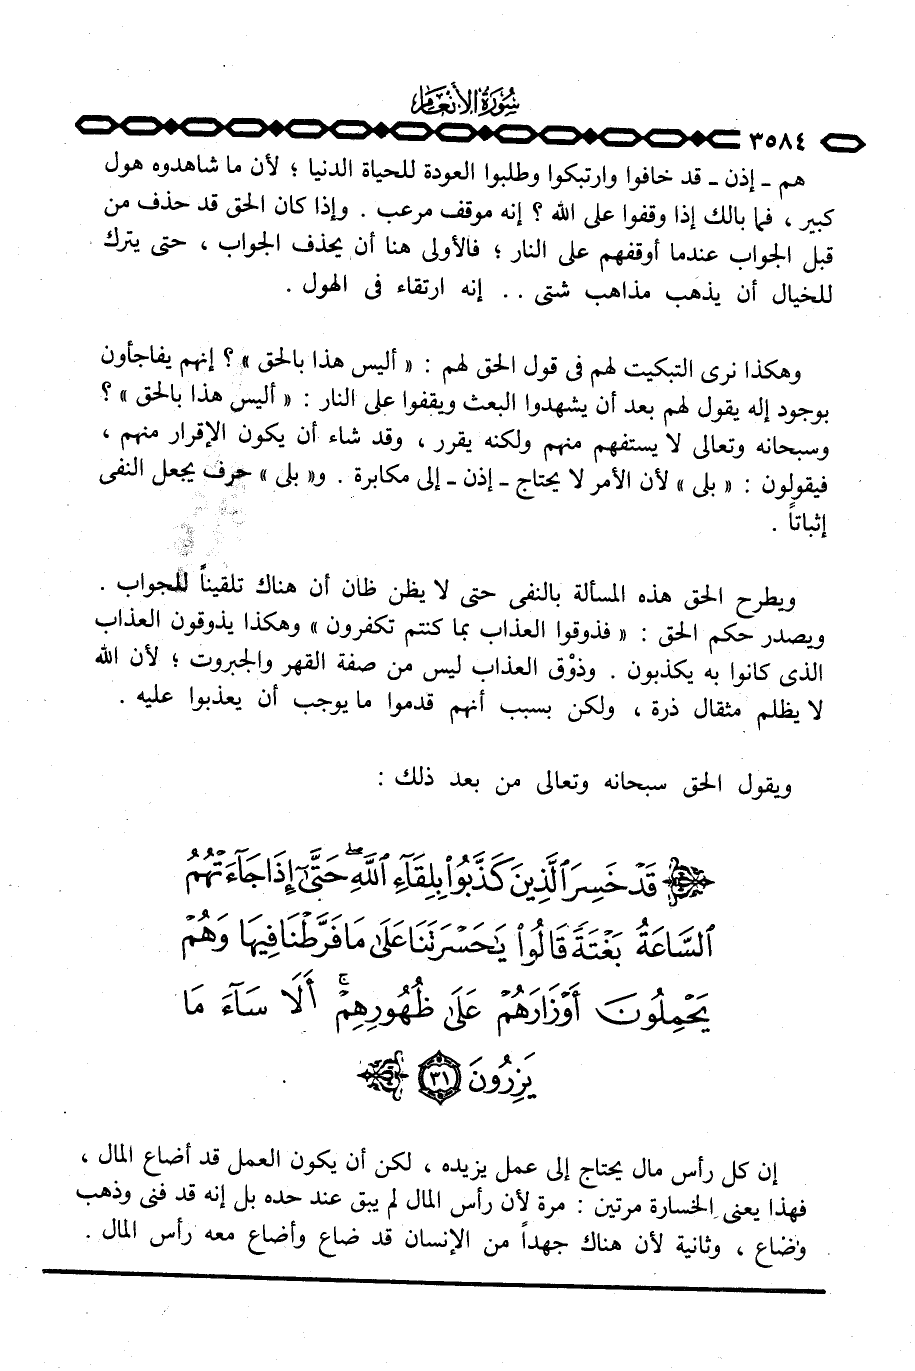 سُورَةُ الأَنْعَام
٣٥٨٤
هم ـ إذن ـ قد خافوا وارتبكوا وطلبوا العودة للحياة الدنيا ؛ لأن ما شاهدوه هول
كبير ، فما بالك إذا وقفوا على الله ؟ إنه موقف مرعب . وإذا كان الحق قد حذف من
قبل الجواب عندما أوقفهم على النار ؛ فالأولى هنا أن يحذف الجواب ، حتى يترك
للخيال أن يذهب مذاهب شتى . . إنه ارتقاء فى الهول .
وهكذا نرى التبكيت لهم فى قول الحق لهم : « أليس هذا بالحق » ؟ إنهم يفاجأون
بوجود إله يقول لهم بعد أن يشهدوا البعث ويقفوا على النار : « أليس هذا بالحق » ؟
وسبحانه وتعالى لا يستفهم منهم ولكنه يقرر ، وقد شاء أن يكون الإقرار منهم ،
فيقولون : « بلى » لأن الأمر لا يحتاج ـ إذن ـ إلى مكابرة . و« بلى » حرف يجعل النفى
إثباتاً .
ويطرح الحق هذه المسألة بالنفى حتى لا يظن ظان أن هناك تلقيناً للجواب .
ويصدر حكم الحق : « فذوقوا العذاب بما كنتم تكفرون » وهكذا يذوقون العذاب
الذى كانوا به يكذبون . وذوْق العذاب ليس من صفة القهر والجبروت ؛ لأن الله
لا يظلم مثقال ذرة ، ولكن بسبب أنهم قدموا ما يوجب أن يعذبوا عليه .
ويقول الحق سبحانه وتعالى من بعد ذلك :
قَدْ خَسِرَ ٱلَّذِينَ كَذَّبُوا۟ بِلِقَآءِ ٱللَّهِ ۖ حَتَّىٰٓ إِذَا جَآءَتْهُمُ
ٱلسَّاعَةُ بَغْتَةً قَالُوا۟ يَٰحَسْرَتَنَا عَلَىٰ مَا فَرَّطْنَا فِيهَا وَهُمْ
يَحْمِلُونَ أَوْزَارَهُمْ عَلَىٰ ظُهُورِهِمْ ۚ أَلَا سَآءَ مَا
يَزِرُونَ ٣١
إن كل رأس مال يحتاج إلى عمل يزيده ، لكن أن يكون العمل قد أضاع المال ،
فهذا يعنى الخسارة مرتين : مرة لأن رأس المال لم يبق عند حده بل إنه قد فنى وذهب
وضاع ، وثانية لأن هناك جهداً من الإنسان قد ضاع وأضاع معه رأس المال .